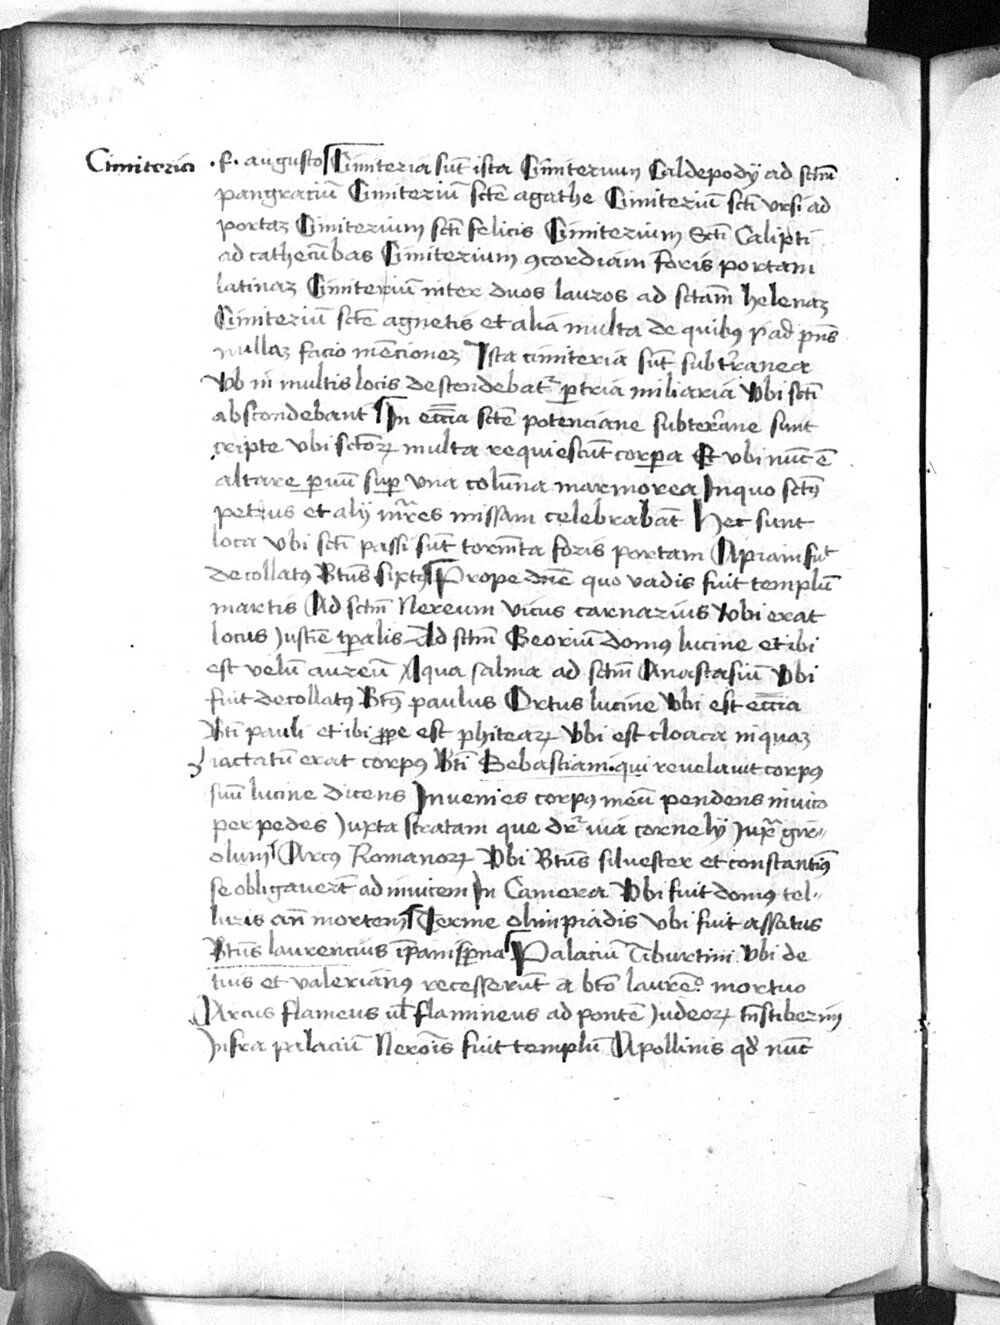 Cimiteria
.f. augusto Cimiteria sūt ista Cimiterium Caldepodÿ ad sctm̄
pangraciū Cimiteriū scte agathe Cimiteriū scti vrsi ad
portaꝫ Cimiterium scti felicis Cimiterium Scti Calipti
ad cathecūbas Cimiterium ꝯcordiam foris portam
latinaꝫ Cimiteriū inter duos lauros ad sctam̄ helenaꝫ
Cimiteriū scte agnetis et alia multa de quibꝰ ad pn̄s
nullaꝫ facio mēcioneꝫ Ista cimiteria sūt subtranea
Vb in multis locis descendebat ꝑ tria miliaria Vbi scti
abscondebant In ecc̄ia scte potenciane subterrane sunt
cripte vbi sctoꝝ multa requiescūt corpa Et vbi nūc ē
altare ꝑuū suꝑ vna colūna marmorea In quo sctꝰ
petrus et alÿ mr̄es missam celebrabāt Hec sunt
loca vbi scti passi sūt tormēta foris portam Apiam fuit
decollatꝰ Btūs sixtꝰ Prope dn̄e quo vadis fuit templū
martis Ad sctm̄ Nereum vicus carnarius Vbi erat
locus Justicie tꝑalis Ad sctm̄ Georiū domꝰ lucine et ibi
est velū aureū Aqua salma ad sctm̄ Anastasiū Vbi
fuit decollatꝰ Btꝰ paulus Ortus lucine Vbi est ecc̄ia
Bti pauli et ibi ꝓpe est phiteaꝝ Vbi est cloaca in quaꝫ
iactatū erat corpꝰ Bti Sebastiani qui revelavit corpꝰ
suū lucine dicens Invenies corpꝰ meū pendens in uico
per pedes Juxta stratam que dr̄ via cornelÿ Jux̄ gir-
olum Arcꝰ Romanoꝝ Vbi Btūs silvester et constantiꝰ
se obligauerūt ad invicem In Camera Vbi fuit domꝰ tel-
luris an̄ mortem Terme olimpiadis vbi fuit assatus
Btūs laurencius ī panisꝑna Palaciū Tiburtini Vbi de
tius et valerianꝰ recesserūt a bto laurē mortuo
Arcus flameus ul̄ flamineus ad pontē Judeoꝝ trāstiberim
Infra palaciū Nerōis fuit templū Apollinis qd̄ nūc